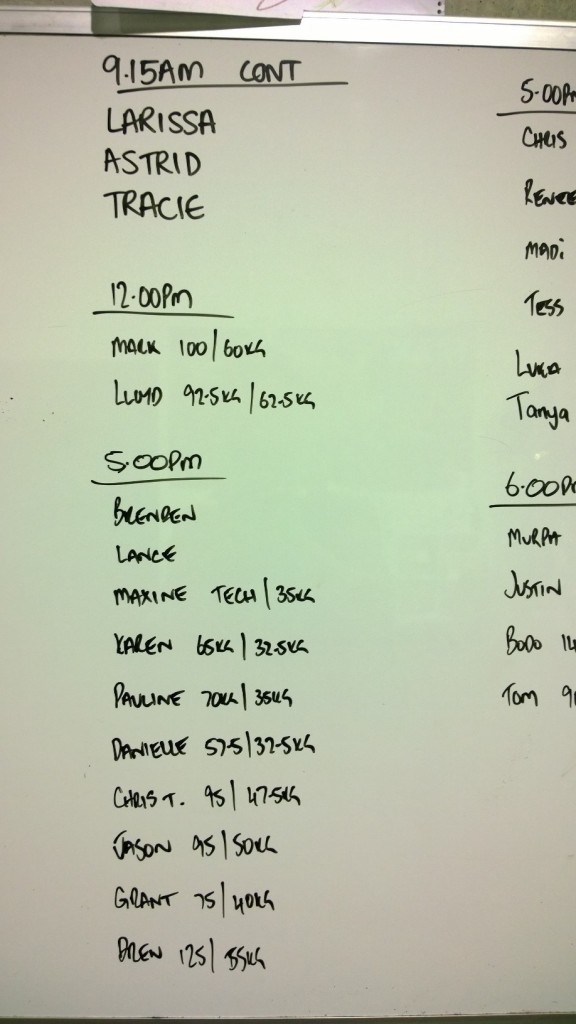 9.15AM CONT
LARISSA
ASTRID
TRACIE
12.00PM
MARK 100/60KG
LLOYD 92.5KG/62.5KG
5.00PM
BRENDEN
LANCE
MAXINE TECH/35KG
KAREN 65KG/32.5KG
PAULINE 70KG/35KG
DANIELLE 57.5/32.5KG
CHRIS T. 95/47.5KG
JASON 95/50KG
GRANT 75/40KG
DREN 125/55KG
5.00PM
CHRIS
RENEE
MADi
TESS
LUKA
Tanya
6.00P
MURPH
JUSTIN
BODO 14
TOM 9